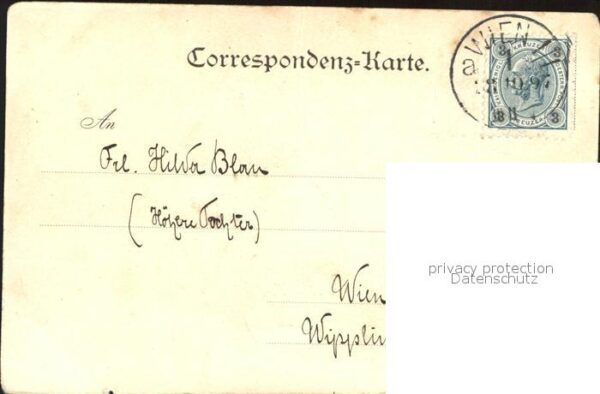 Correspondenz-Karte.
WIEN
3 KREUZER 3
An
Frl. Hilda Blau
(Höhere Tochter)
Wien
Wipplin
privacy protection
Datenschutz